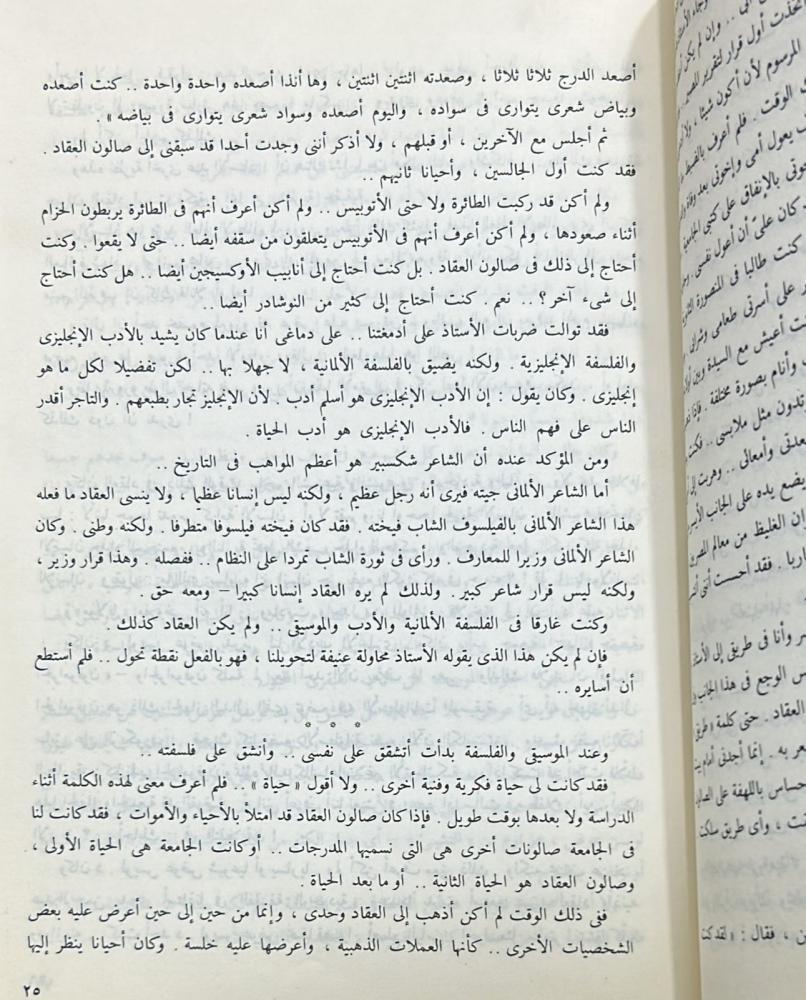 أصعد الدرج ثلاثا ثلاثا ، وصعدته اثنتين اثنتين ، وها أنذا أصعده واحدة واحدة .. كنت أصعده
وبياض شعرى يتوارى فى سواده ، واليوم أصعده وسواد شعرى يتوارى فى بياضه » .
ثم أجلس مع الآخرين ، أو قبلهم ، ولا أذكر أننى وجدت أحدا قد سبقنى إلى صالون العقاد .
فقد كنت أول الجالسين ، وأحيانا ثانيهم ..
ولم أكن قد ركبت الطائرة ولا حتى الأتوبيس .. ولم أكن أعرف أنهم فى الطائرة يربطون الحزام
أثناء صعودها ، ولم أكن أعرف أنهم فى الأتوبيس يتعلقون من سقفه أيضا .. حتى لا يقعوا . وكنت
أحتاج إلى ذلك فى صالون العقاد . بل كنت أحتاج إلى أنابيب الأوكسيجين أيضا .. هل كنت أحتاج
إلى شىء آخر ؟ .. نعم . كنت أحتاج إلى كثير من النوشادر أيضا ..
فقد توالت ضربات الأستاذ على أدمغتنا .. على دماغى أنا عندما كان يشيد بالأدب الإنجليزى
والفلسفة الإنجليزية . ولكنه يضيق بالفلسفة الألمانية ، لا جهلا بها .. لكن تفضيلا لكل ما هو
إنجليزى . وكان يقول : إن الأدب الإنجليزى هو أسلم أدب . لأن الإنجليز تجار بطبعهم . والتاجر أقدر
الناس على فهم الناس . فالأدب الإنجليزى هو أدب الحياة .
ومن المؤكد عنده أن الشاعر شكسبير هو أعظم المواهب فى التاريخ ..
أما الشاعر الألمانى جيته فيرى أنه رجل عظيم ، ولكنه ليس إنسانا عظيما ، ولا ينسى العقاد ما فعله
هذا الشاعر الألمانى بالفيلسوف الشاب فيخته . فقد كان فيخته فيلسوفا متطرفا . ولكنه وطنى . وكان
الشاعر الألمانى وزيرا للمعارف . ورأى فى ثورة الشاب تمردا على النظام .. ففصله . وهذا قرار وزير ،
ولكنه ليس قرار شاعر كبير . ولذلك لم يره العقاد إنسانا كبيرا – ومعه حق .
وكنت غارقا فى الفلسفة الألمانية والأدب والموسيقى .. ولم يكن العقاد كذلك .
فإن لم يكن هذا الذى يقوله الأستاذ محاولة عنيفة لتحويلنا ، فهو بالفعل نقطة تحول .. فلم أستطع
أن أسايره ..
* * *
وعند الموسيقى والفلسفة بدأت أتشقق على نفسى .. وأنشق على فلسفته ..
فقد كانت لى حياة فكرية وفنية أخرى .. ولا أقول « حياة » .. فلم أعرف معنى لهذه الكلمة أثناء
الدراسة ولا بعدها بوقت طويل . فإذا كان صالون العقاد قد امتلأ بالأحياء والأموات ، فقد كانت لنا
فى الجامعة صالونات أخرى هى التى نسميها المدرجات .. أو كانت الجامعة هى الحياة الأولى ،
وصالون العقاد هو الحياة الثانية .. أو ما بعد الحياة .
ففى ذلك الوقت لم أكن أذهب إلى العقاد وحدى ، وإنما من حين إلى حين أعرض عليه بعض
الشخصيات الأخرى .. كأنها العملات الذهبية ، وأعرضها عليه خلسة . وكان أحيانا ينظر إليها
٢٥